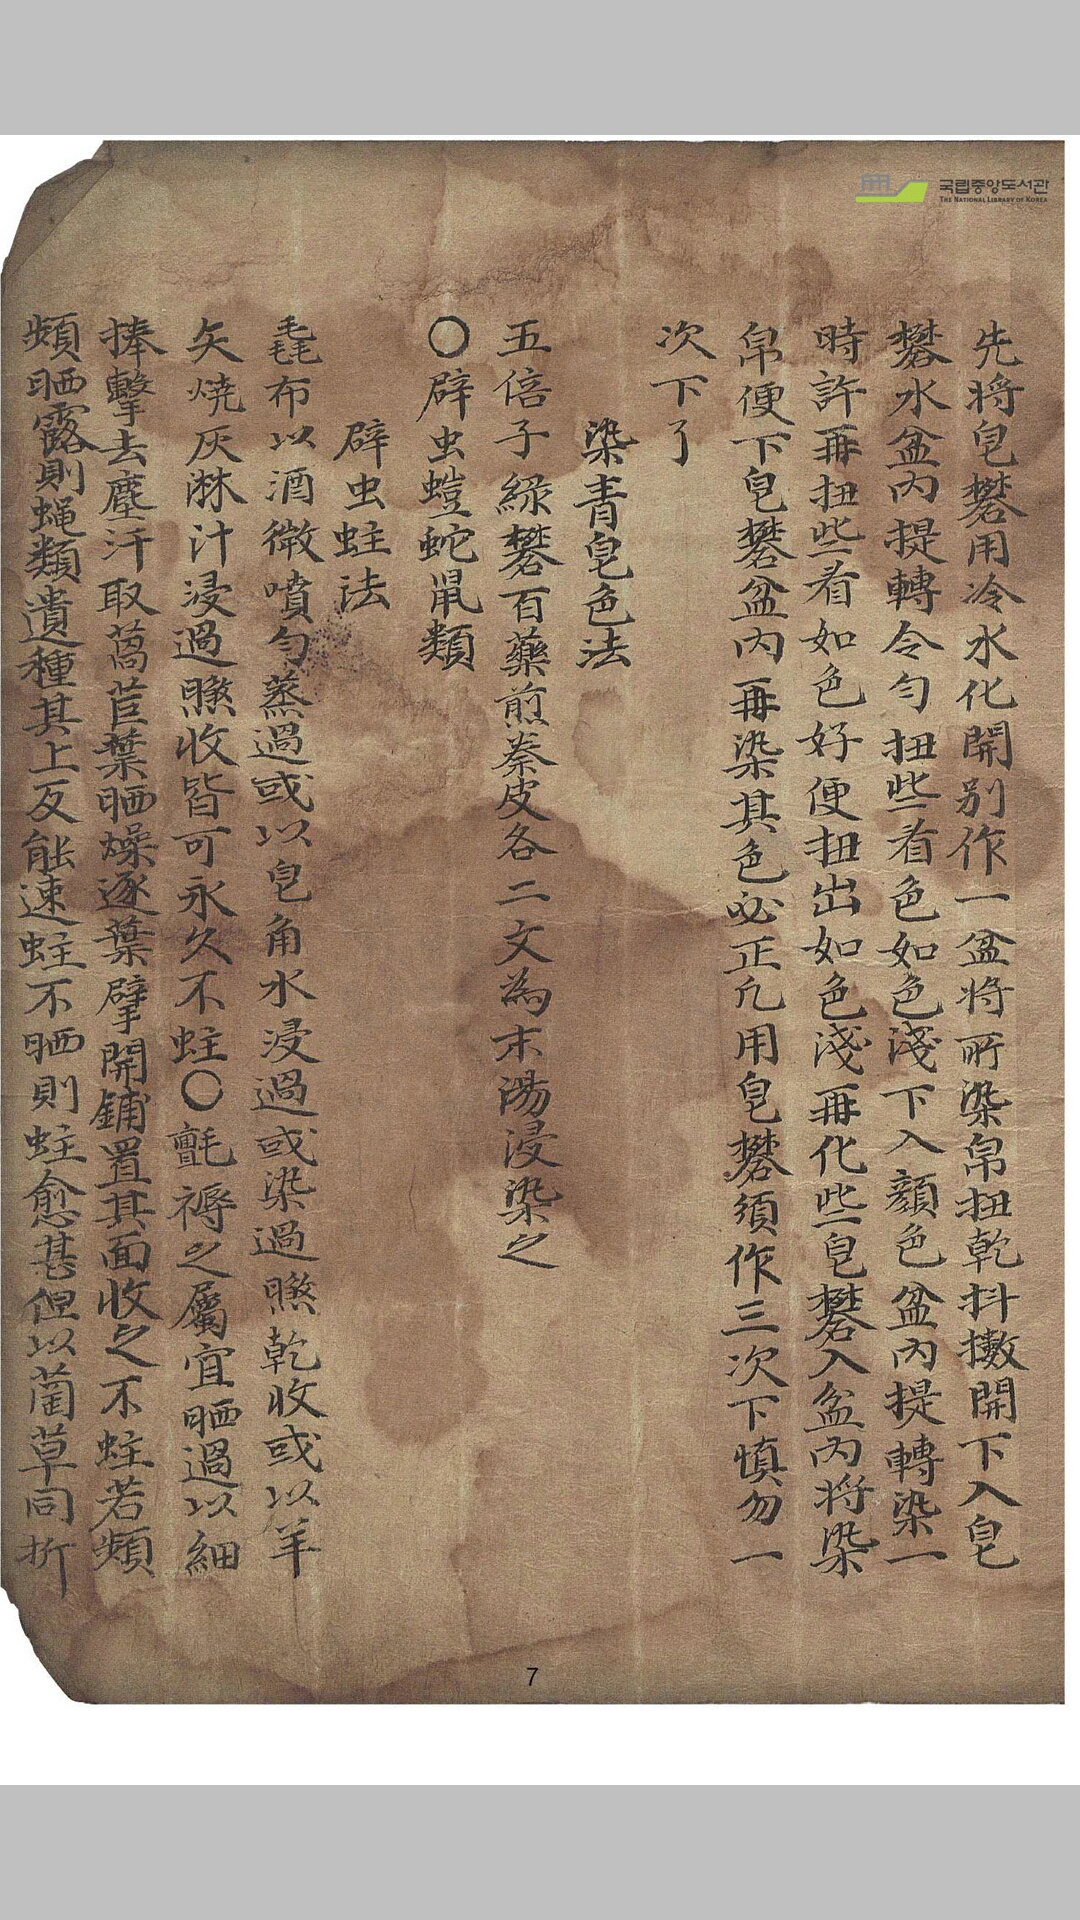 국립중앙도서관
THE NATIONAL LIBRARY OF KOREA
先将皂礬用冷水化開別作一盆将所染帛扭乾抖擻開下入皂
礬水盆內提轉令勻扭些看色如色淺下入顔色盆內提轉染一
時許再扭些看如色好便扭出如色淺再化些皂礬入盆內将染
帛便下皂礬盆內再染其色必正凢用皂礬須作三次下慎勿一
次下了
染青皂色法
五倍子綠礬百藥煎蓁皮各二文為末湯浸染之
〇辟虫螘蛇鼠類
辟虫蛀法
毳布以酒微噴勻蒸過或以皂角水浸過或染過㬠乾收或以羊
矢燒灰淋汁浸過㬠收皆可永久不蛀〇氈褥之屬宜晒過以細
捧擊去塵汗取萵苣葉晒燥逐葉擘開鋪置其面收之不蛀若頻
頻晒露則蝇類遺種其上反能速蛀不晒則蛀愈甚但以蔄草同折
7